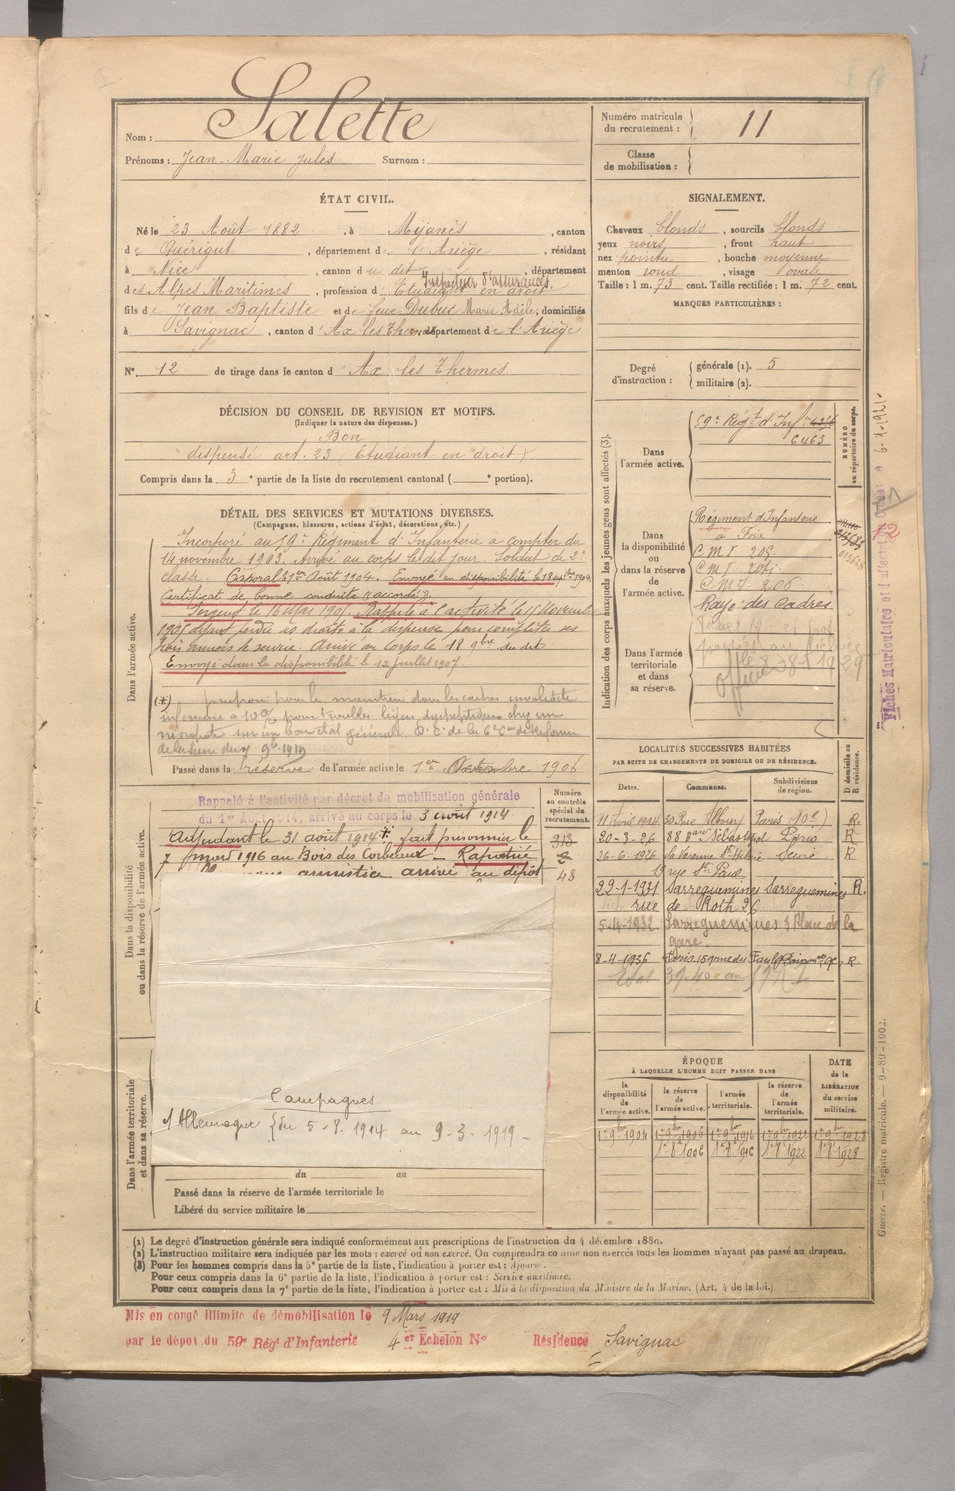 Salette
Nom :
Prénoms : Jean Marie Jules Surnom :
Numéro matricule du recrutement : 11
Classe de mobilisation :
ÉTAT CIVIL.
Né le 23 Août 1882, à Mijanès, canton
de Quérigut, département de l'Ariège, résidant
à Nice, canton du dit, département
Inspecteur d'assurances
des Alpes Maritimes, profession d' Etudiant en droit
fils de Jean Baptiste et de feue Dubuc Marie Adèle, domiciliés
à Savignac, canton d'Ax les Thermes département de l'Ariège
N° 12 de tirage dans le canton d'Ax les Thermes
SIGNALEMENT.
Cheveux blonds, sourcils blonds
yeux noirs, front haut
nez pointu, bouche moyenne
menton rond, visage ovale
Taille : 1 m. 73 cent. Taille rectifiée : 1 m. 72 cent.
MARQUES PARTICULIÈRES :
Degré d'instruction :
générale (1). 5
militaire (2).
DÉCISION DU CONSEIL DE REVISION ET MOTIFS.
(Indiquer la nature des dispenses.)
Bon
dispensé art. 23 (Etudiant en droit)
Compris dans la 3e partie de la liste du recrutement cantonal ( e portion).
DÉTAIL DES SERVICES ET MUTATIONS DIVERSES.
(Campagnes, blessures, actions d'éclat, décorations, etc.)
Dans l'armée active.
Incorporé au 59e Régiment d'Infanterie à compter du
14 novembre 1903. Arrivé au corps le dit jour. Soldat de 2e
classe. Caporal le 1er Août 1904. Envoyé en disponibilité le 18 7bre 1904.
Certificat de bonne conduite "accordé".
Sergent le 16 Mars 190 Rappelé à l'activité le Novembre
190 ayant perdu ses droits à la dispense pour compléter ses
trois années de service. Arrivé au corps le 18 9bre du dit
Envoyé dans la disponibilité le 12 juillet 1907.
(*) proposition pour le maintien dans les cadres invalidité
inférieure à 10 % pour
sur un bon état général. de Réforme
de la Seine du 9bre 1919
Passé dans la réserve de l'armée active le 1er Octobre 1906
Indication des corps auxquels les jeunes gens sont affectés (3).
Dans l'armée active.
59e Régt d'Infie
6463
NUMÉRO au répertoire du corps.
Dans la disponibilité ou dans la réserve de l'armée active.
Régiment d'Infanterie
à Foix
C M I 205
C M I 206
Rayé des Cadres
Dans l'armée territoriale et dans sa réserve.
Fiches Matriculaire et d'affectation 6-1-1921
LOCALITÉS SUCCESSIVES HABITÉES
PAR SUITE DE CHANGEMENTS DE DOMICILE OU DE RÉSIDENCE.
Dates. Communes. Subdivisions de région. D domicile ou R résidence.
11 Avril 1924 30 Rue Albouy Paris (10e) R.
20-3-26 88 Bard Sébastopol Paris R
26-6-1926 La Varenne St Hilaire Seine R
22-1-1931 Sarreguemines Sarreguemines R.
rue de Roth 26
5-4-1932 Sarreguemines 3 Place de la
gare
8-4-1936 Paris
Dans la disponibilité ou dans la réserve de l'armée active.
Rappelé à l'activité par décret de mobilisation générale
du 1er Août 1914, arrivé au corps le 3 août 1914
Adjudant le 31 août 1914 * fait prisonnier le
7 mars 1916 au Bois des Corbeaux - Rapatrié
arrivé au dépôt
Numéro au contrôle spécial du recrutement.
313
48
Campagnes
Allemagne { du 5-8-1914 au 9-3-1919 -
Dans l'armée territoriale et dans sa réserve.
du au
Passé dans la réserve de l'armée territoriale le
Libéré du service militaire le
ÉPOQUE
À LAQUELLE L'HOMME DOIT PASSER DANS
la disponibilité de l'armée active. la réserve de l'armée active. l'armée territoriale. la réserve de l'armée territoriale. DATE de la LIBÉRATION du service militaire.
1er 9bre 1904 1er 9bre 1906 1er 9bre 1916 1er 9bre 1922 1er 9bre 1928
1er 8bre 1906 1er 8bre 1916 1er 8bre 1922 1er 8bre 1928
Guerre. — Registre matricule. — 9-89-1902.
(1) Le degré d'instruction générale sera indiqué conformément aux prescriptions de l'instruction du 4 décembre 1889.
(2) L'instruction militaire sera indiquée par les mots : exercé ou non exercé. On comprendra comme non exercés tous les hommes n'ayant pas passé au drapeau.
(3) Pour les hommes compris dans la 5e partie de la liste, l'indication à porter est : Ajourné.
Pour ceux compris dans la 6e partie de la liste, l'indication à porter est : Service auxiliaire.
Pour ceux compris dans la 7e partie de la liste, l'indication à porter est : Mis à la disposition du Ministre de la Marine. (Art. 4 de la loi.)
Mis en congé illimité de démobilisation le 9 Mars 1919
par le dépôt du 59e Régt d'Infanterie 4e Échelon N° Résidence Savignac